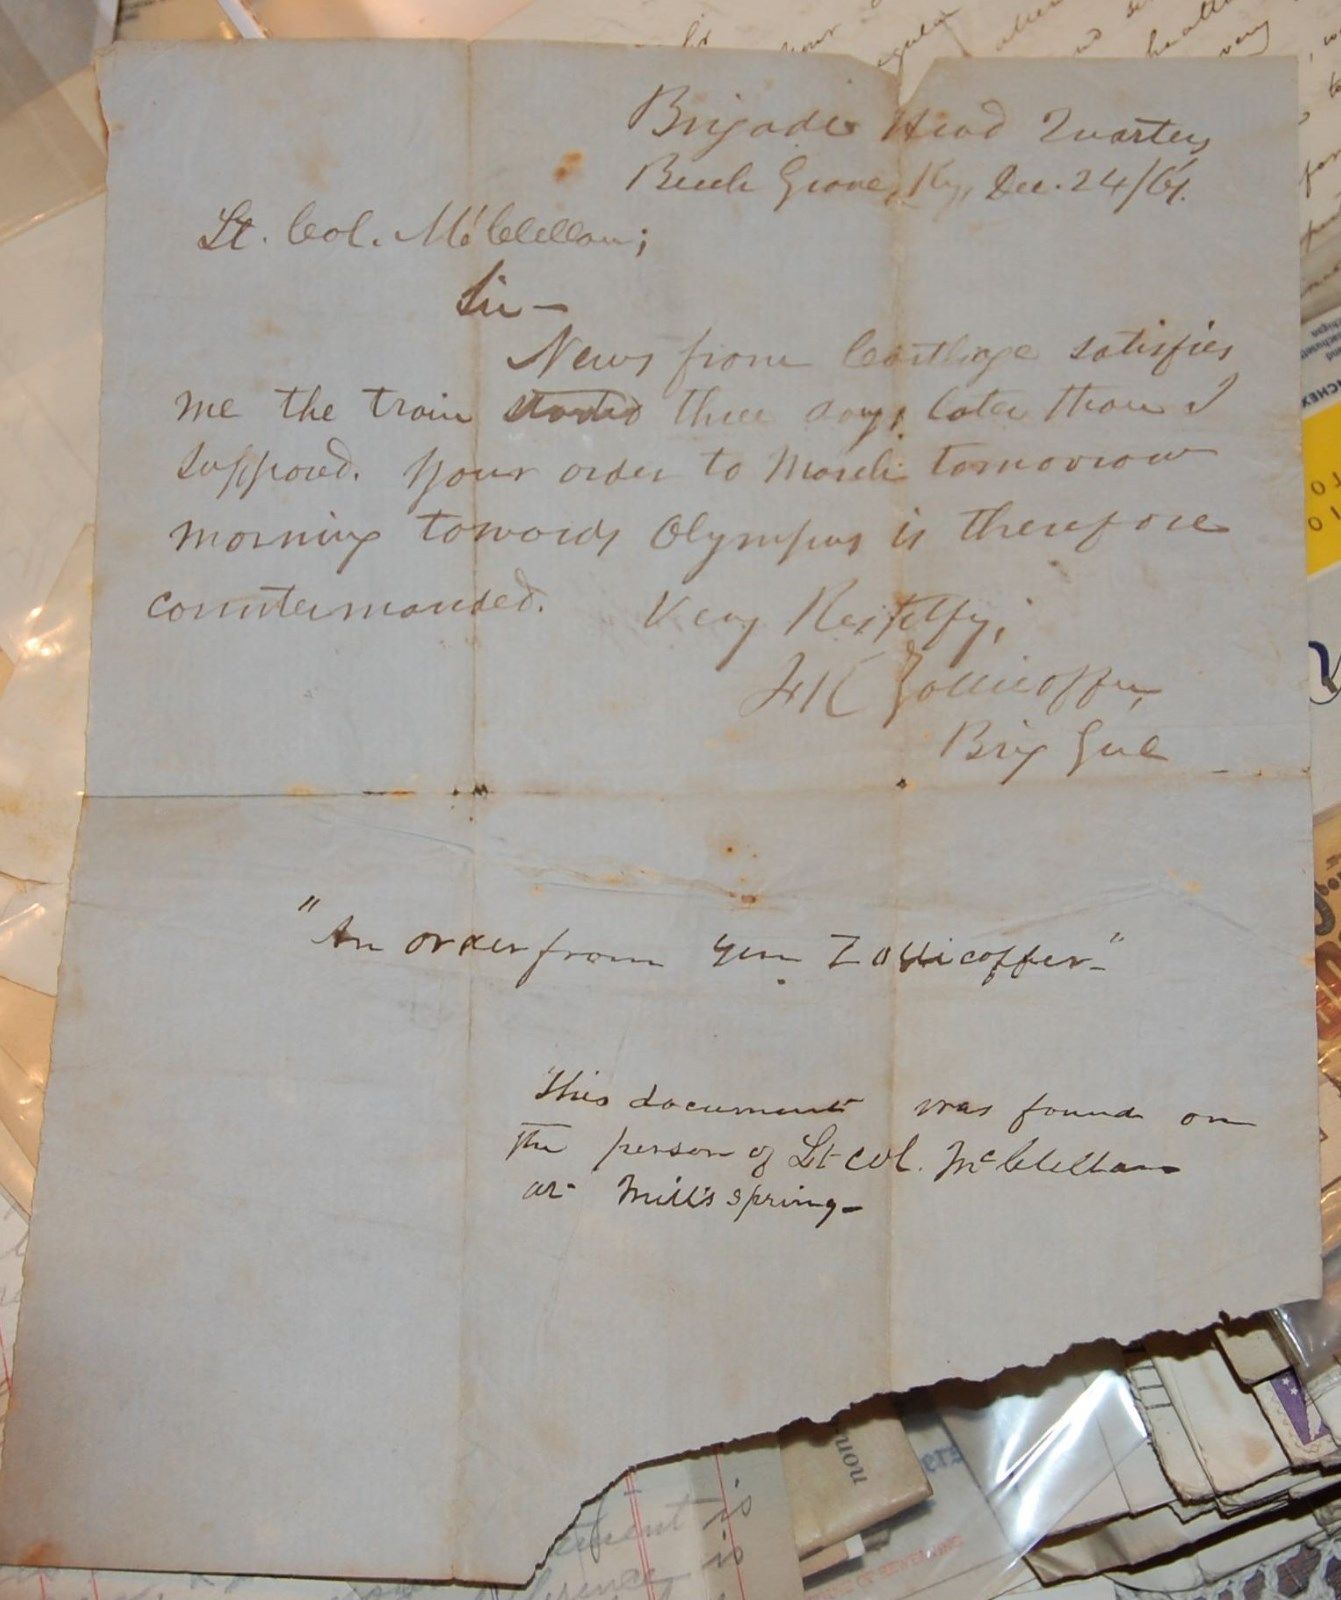 Brigade Head Quarters,
Beech Grove, Ky, Dec. 24/61.
Lt. Col. McClellan;
Sir—
News from Carthage satisfies
me the train started three days later than I
supposed. Your order to march tomorrow
morning towards Olympus is therefore
countermanded. Very Respetfly,
FK Zollicoffer,
Brig Genl
"An order from Gen Zollicoffer"
This document was found on
the person of Lt Col. McClellan
at Mill's spring—